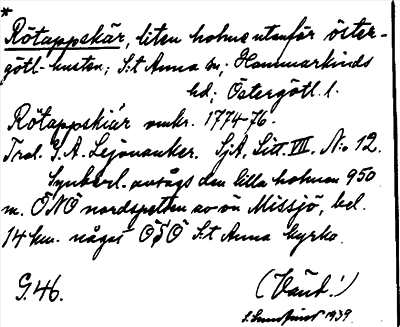 *
Rötappskär, liten holme utanför öster-
götl-kusten; S:t Anna sn; Hammarkinds
hd; Östergötl. l.
Rötappskiär omkr. 1774-76.
Trol. G. A. Lejonanker. SjA, Litt. VIII. N:o 12.
Synbarl. avsågs den lilla holmen 950
m. ÖNÖ nordspetsen av ön Missjö, bel.
14 km. något ÖSÖ S:t Anna kyrka.
G. 46.
(Vänd!)
1939